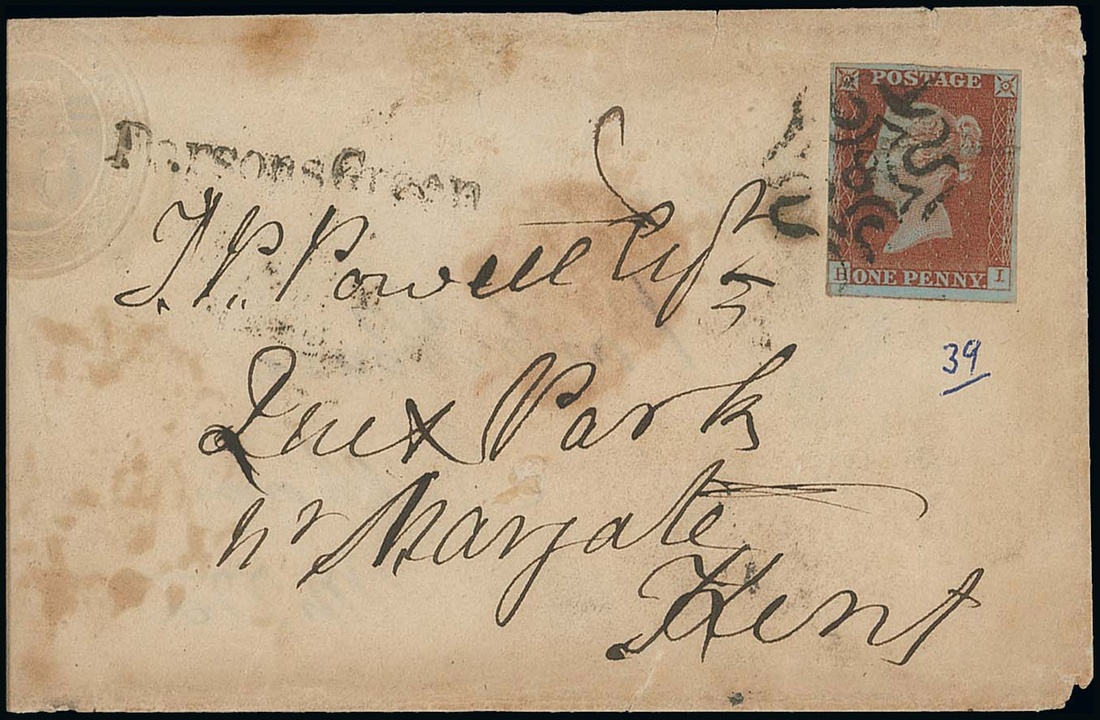 Parsons Green
POSTAGE
H ONE PENNY. I
J. P. Powell Esqr
39
Quex Park
nr Margate
Kent